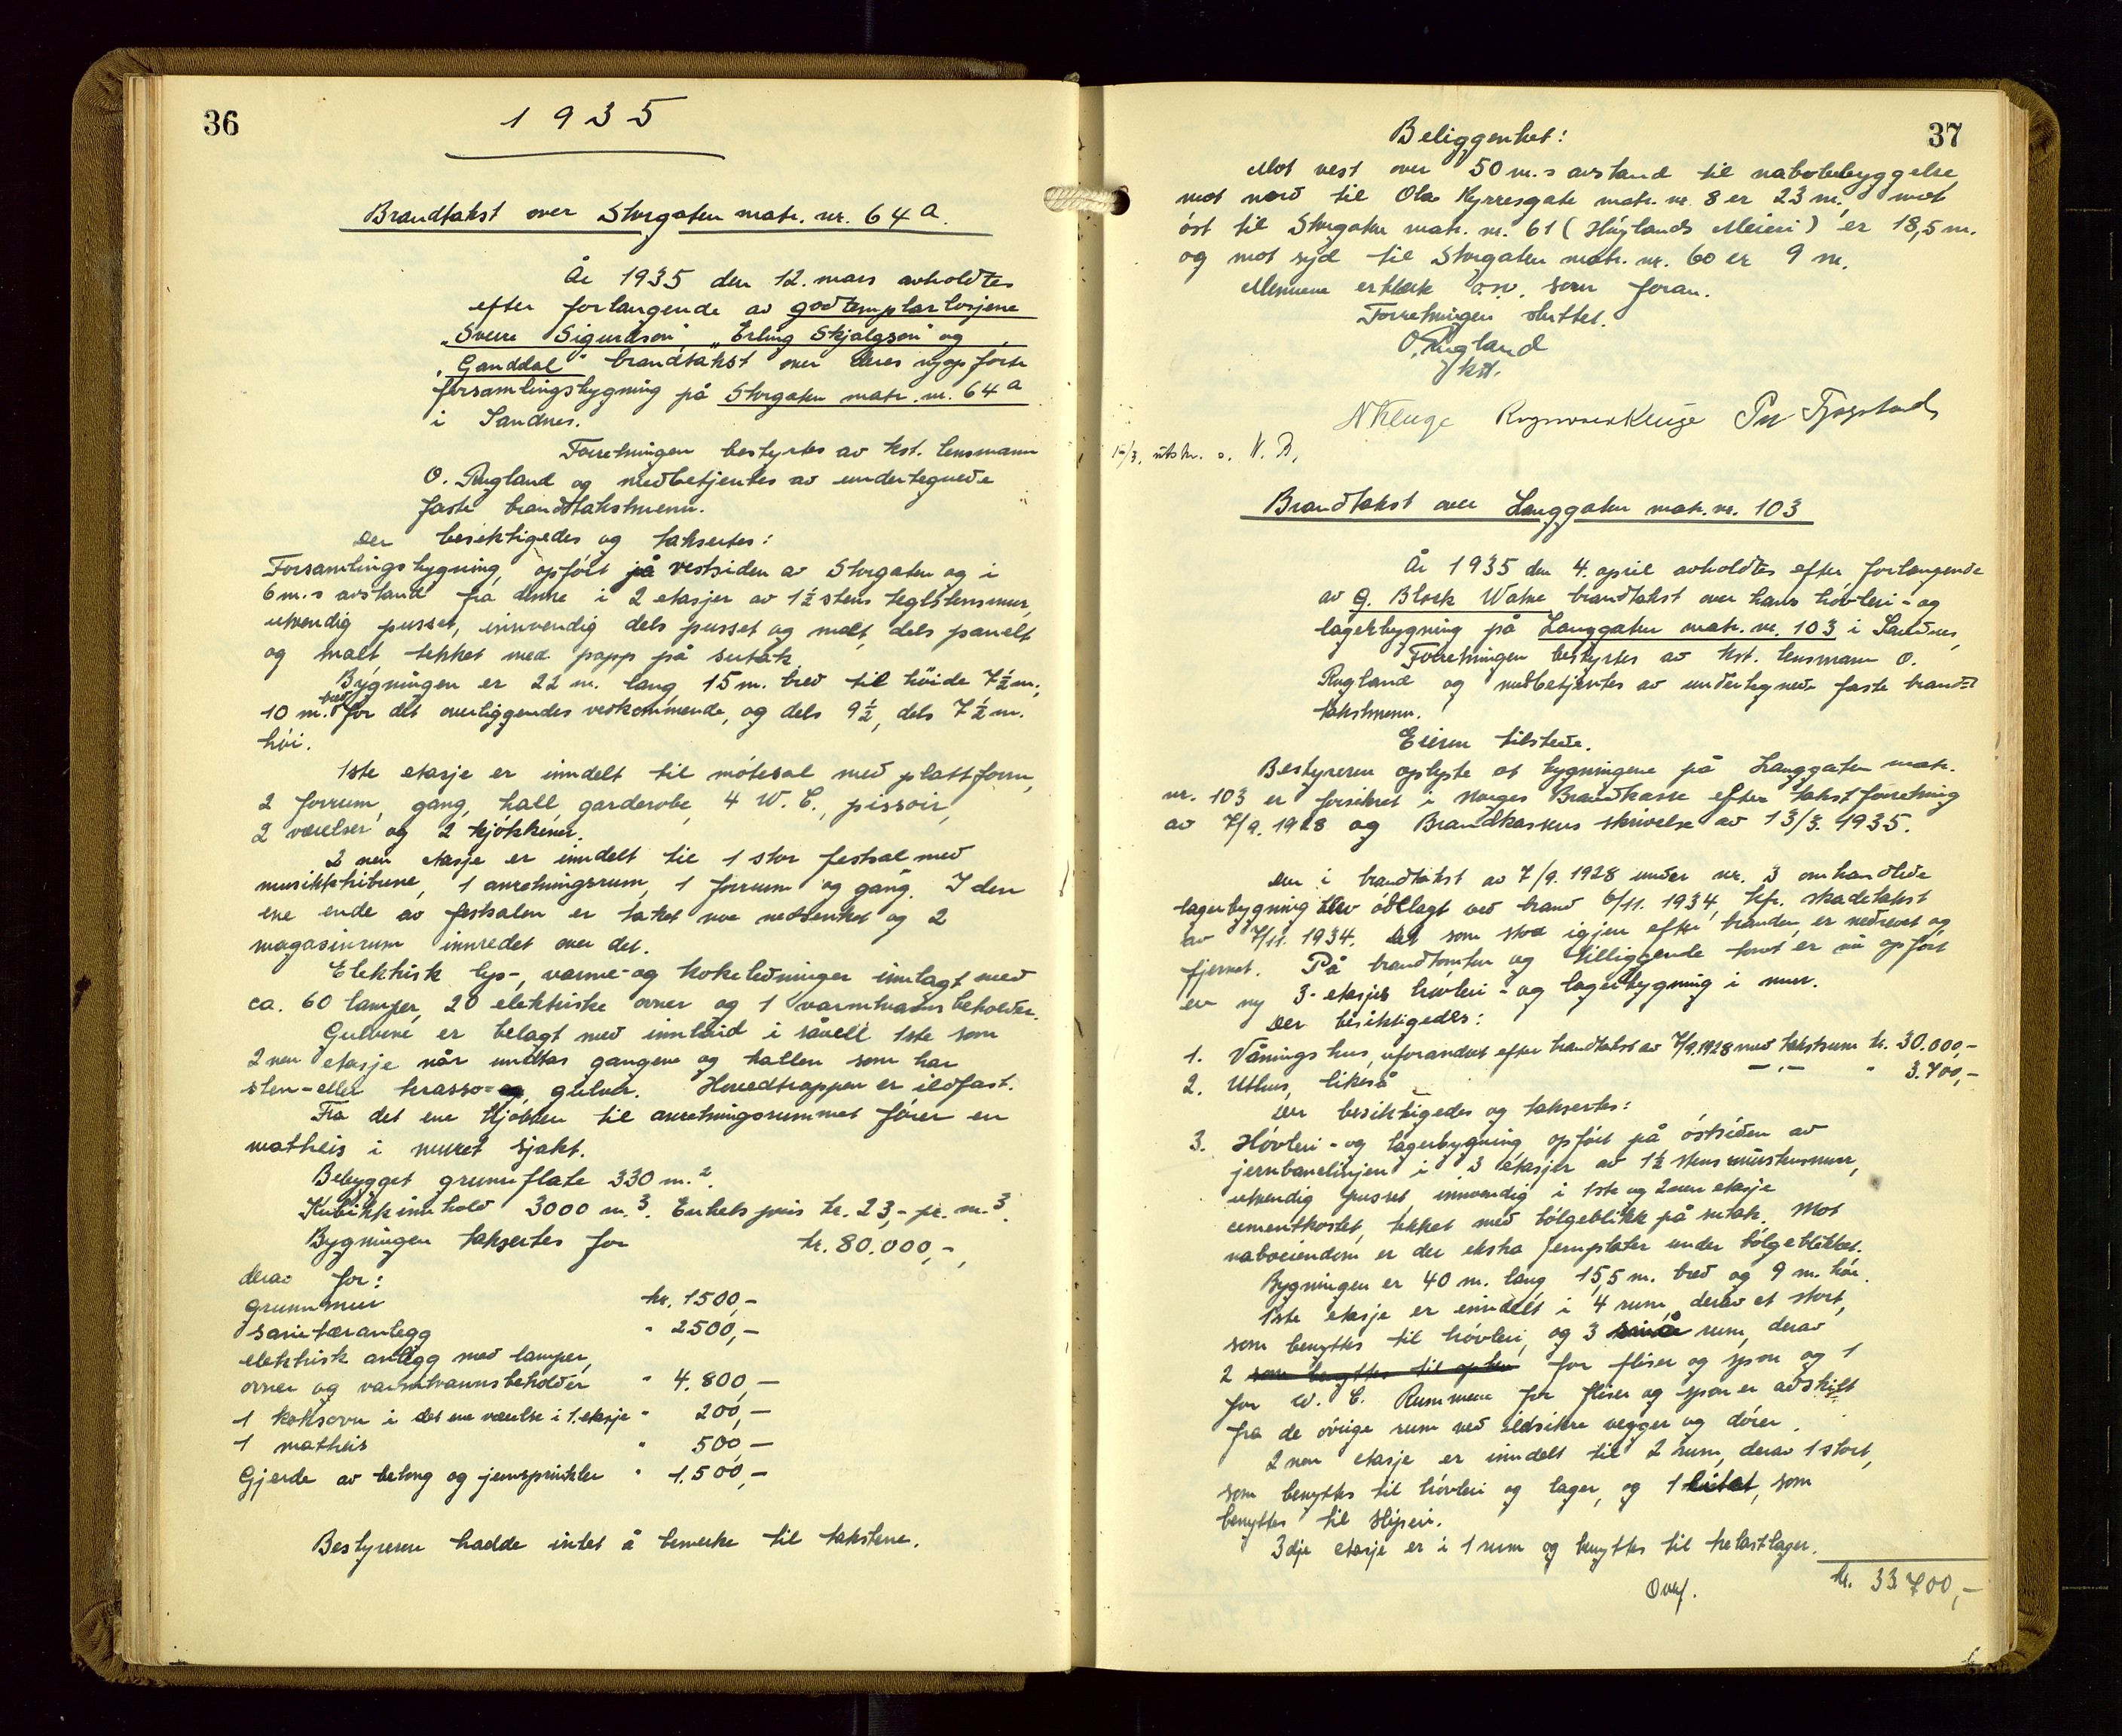 36
1935
Brandtakst over Storgaten matr. nr. 64 a.
År 1935 den 12. mars avholdtes
efter forlangende av godtemplarlosjene
„Sverre Sigurdson", „Erling Skjalgson" og
„Ganddal" brandtakst over deres nyopførte
forsamlingsbygning på Storgaten matr. nr. 64 a
i Sandnes.
Forretningen bestyrtes av kst. lensmann
O. Rugland og medbetjentes av undertegnede
faste brandtakstmenn.
Der besiktigedes og taksertes:
Forsamlingsbygning, opført på vestsiden av Storgaten og i
6 m.s avstand fra denne i 2 etasjer av 1½ stens teglstensmur,
utvendig pusset, innvendig dels pusset og malt, dels panelt
og malt, tekket med papp på sutak.
Bygningen er 22 m. lang, 15 m. bred til høide 7½ m.,
10 m. bred for det overliggendes vedkommende, og dels 9½, dels 7½ m.
høi.
1ste etasje er inndelt til møtesal med plattform,
2 forrum, gang, hall, garderobe, 4 W. C., pissoir,
2 værelser og 2 kjøkkener.
2 nen etasje er inndelt til 1 stor festsal med
musikktribune, 1 anretningsrum, 1 forrum og gang. I den
ene ende av festsalen er taket noe nedsenket og 2
magasinrum innredet over det.
Elektrisk lys-, varme- og kokeledninger innlagt med
ca. 60 lamper, 20 elektriske ovner og 1 varmtvannsbeholder.
Gulvene er belagt med innlaid i såvell 1ste som
2 nen etasje når unntas gangene og hallen som har
sten- eller terasso- gulver. Hovedtrappen er ildfast.
Fra det ene kjøkken til anretningsrummet fører en
matheis i muret sjakt.
Bebygget grunnflate 330 m.²
Kubikkinnhold 3000 m.³. Enhetspris kr. 23,- pr. m.³
Bygningen taksertes for kr. 80.000,-,
derav for:
grunnmur kr. 1500,-
sanitæranlegg " 2500,-
elektrisk anlegg med lamper,
ovner og varmtvannsbeholder " 4.800,-
1 koksovn i det ene værelse i 1. etasje " 200,-
1 matheis " 500,-
Gjerde av betong og jernsprinkler " 1.500,-
Bestyreren hadde intet å bemerke til takstene.
37
Beliggenhet:
Mot vest over 50 m.s avstand til nabobebyggelse,
mot nord til Olav Kyrresgate matr. nr. 8 er 23 m., mot
øst til Storgaten matr. nr. 61 (Høylands Meieri) er 18,5 m.
og mot syd til Storgaten matr. nr. 60 er 9 m.
Mennene erklærte o.s.v. som foran.
Forretningen sluttet.
O. Rugland
kst.
N Kluge Ragnvald Kluge
15/3. utskr. s. N. B.
Brandtakst over Langgaten matr. nr. 103
År 1935 den 4. april avholdtes efter forlangende
av G. Block Watne brandtakst over hans høvleri- og
lagerbygning på Langgaten matr. nr. 103 i Sandnes,
Forretningen bestyrtes av kst. lensmann O.
Rugland og medbetjentes av undertegnede faste brand-
takstmenn.
Eieren tilstede.
Bestyreren oplyste at bygningene på Langgaten matr.
nr. 103 er forsikret i Norges Brandkasse efter takstforretning
av 7/9. 1928 og Brandkassens skrivelse av 13/3. 1935.
Den i brandtakst av 7/9. 1928 under nr. 3 omhandlede
lagerbygning blev ødelagt ved brand 6/11. 1934, kfr. skadetakst
av 7/11. 1934. Det som stod igjen efter branden, er nedrevet og
fjernet. På brandtomten og tilliggende tomt er nu opført
en ny 3-etasjes høvleri- og lagerbygning i mur.
Der besiktigedes:
1. Våningshus, uforandret efter brandtakst av 7/9.1928 med takstsum kr. 30.000,-
2. Uthus, likeså —"— " 3.700,-
Der besiktigedes og taksertes:
3. Høvleri- og lagerbygning, opført på østsiden av
jernbanelinjen i 3 etasjer av 1½ stens murstensmur,
utvendig pusset, innvendig i 1ste og 2nen etasje
cementkostet, tekket med bølgeblikk på sutak. Mot
naboeiendom er der ekstra jernplater under bølgeblikket.
Bygningen er 40 m. lang, 15,5 m. bred og 9 m. høi.
1ste etasje er inndelt i 4 rum, derav et stort,
som benyttes til høvleri, og 3 små rum, derav
2 som benyttes til for fliser og spon og 1
for W. C. Rummene for fliser og spon er adskilt
fra de øvrige rum ved ildsikre vegger og dører.
2 nen etasje er inndelt til 2 rum, derav 1 stort,
som benyttes til høvleri og lager, og 1 litet, som
benyttes til sliperi.
3dje etasje er i 1 rum og benyttes til trelastlager.
Overf. kr. 33.700,-